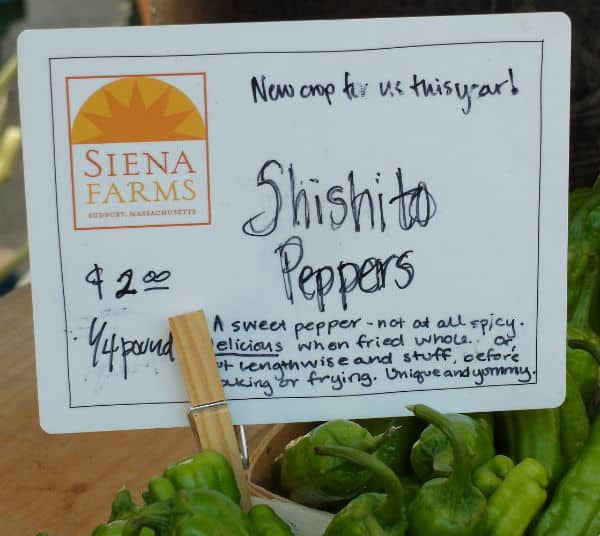 New crop for us this year!
SIENA
FARMS
SUDBURY, MASSACHUSETTS
Shishito
Peppers
$2.00
1/4 pound
A sweet pepper - not at all spicy.
delicious when fried whole.. or,
cut lengthwise and stuff, before
baking or frying. Unique and yummy.